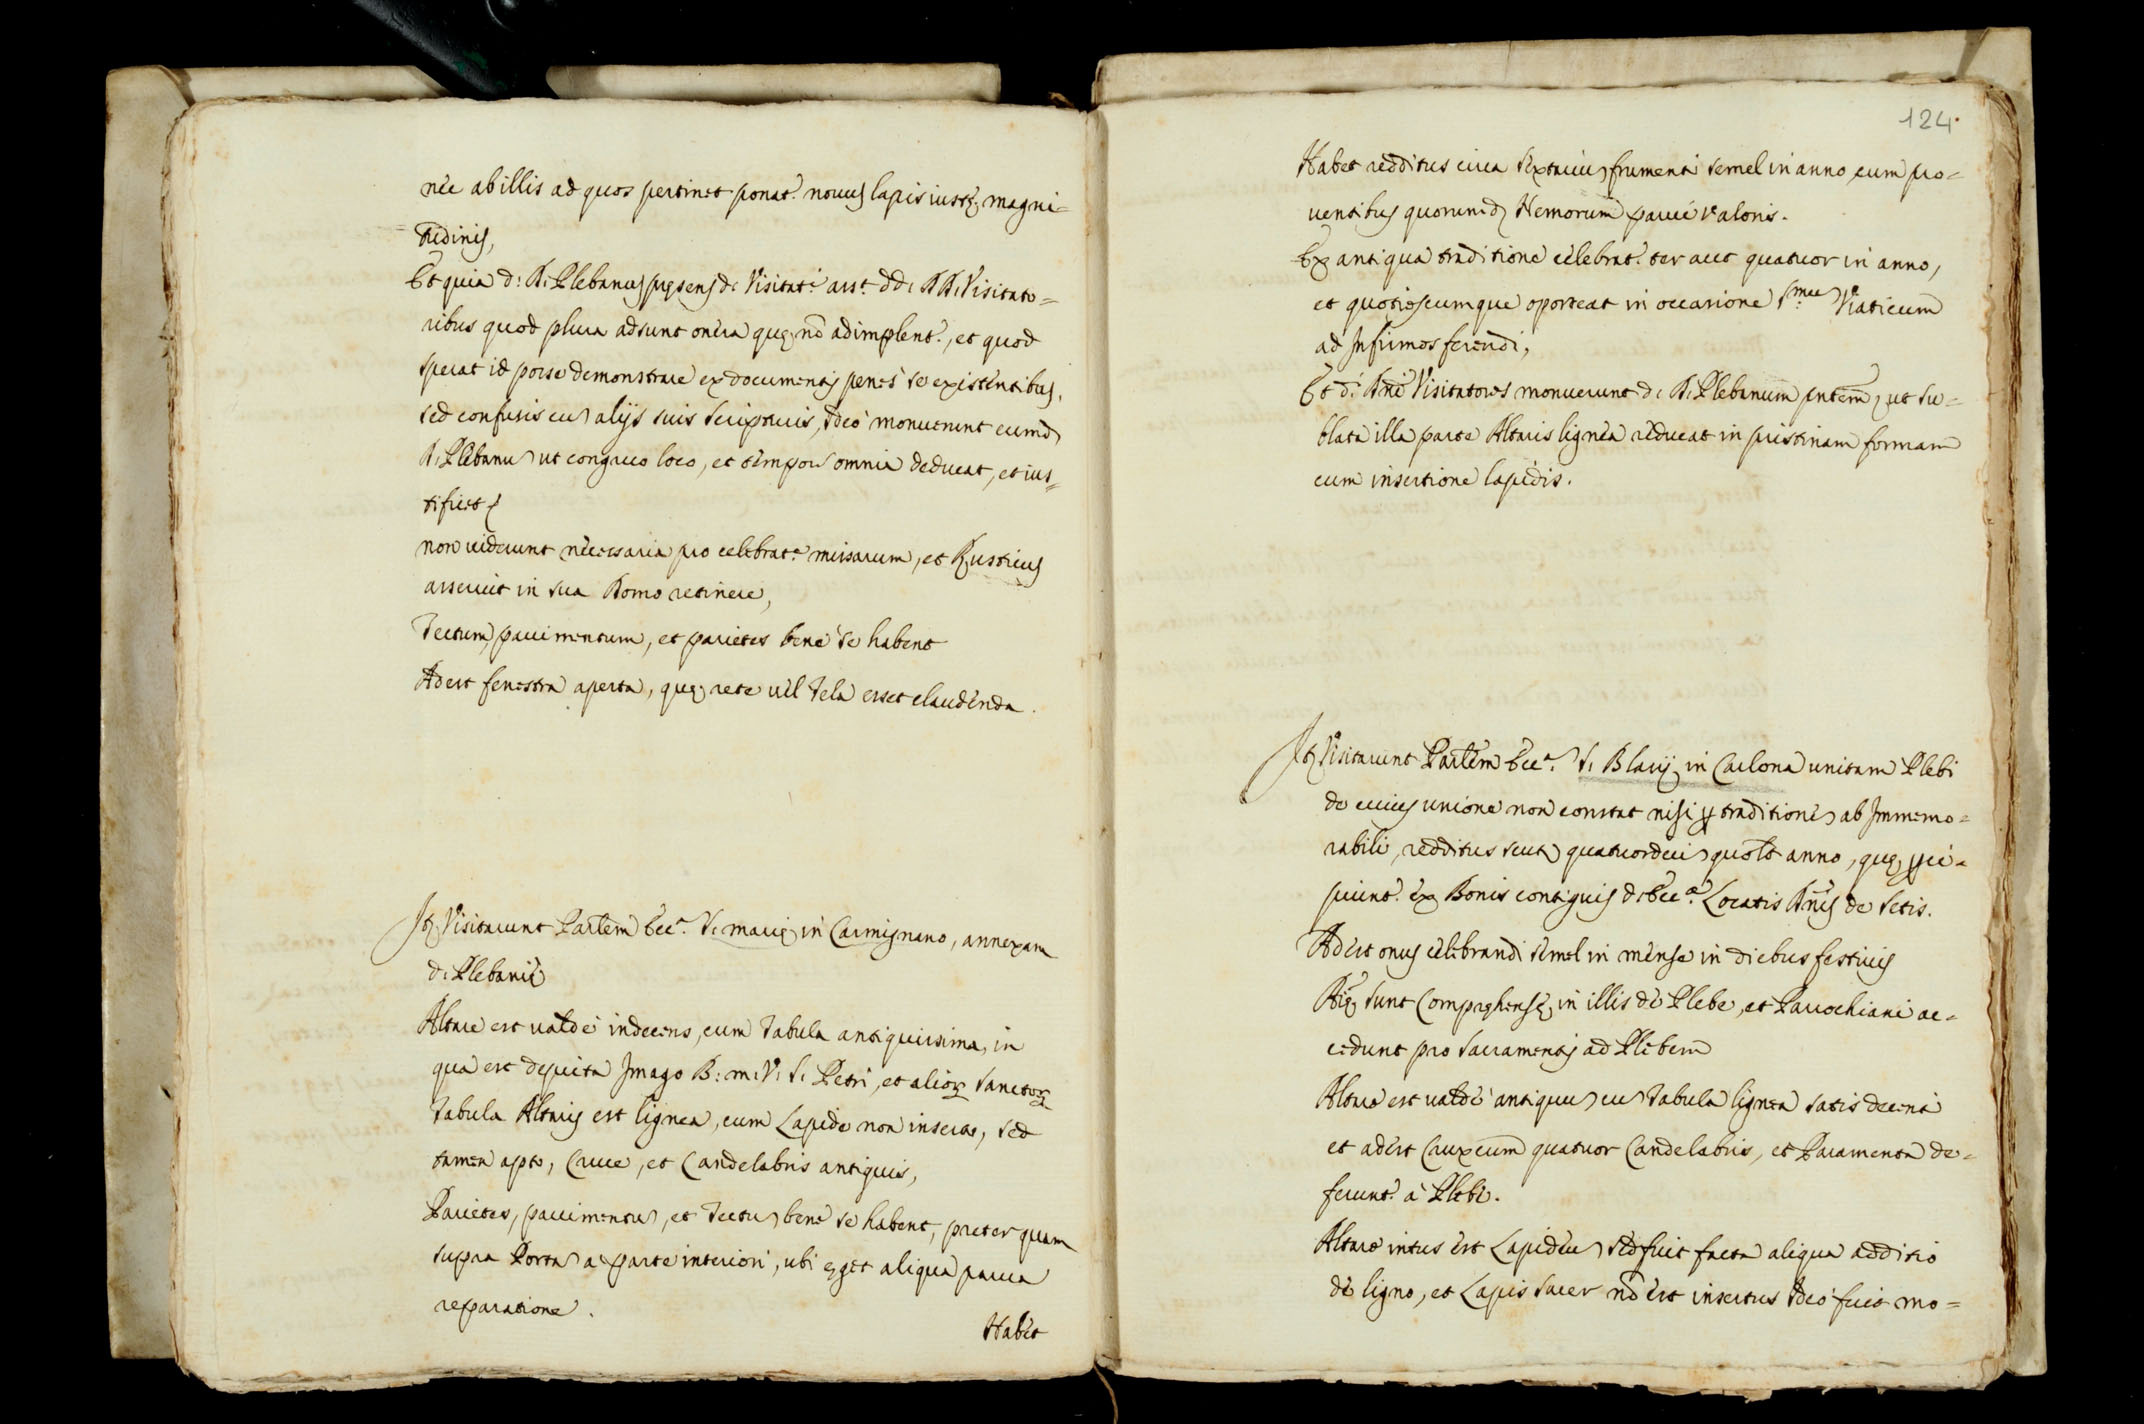 nec ab illis ad quos pertinet ponat.r novus lapis iustę magni-
tudinis,
Et quia d: R: Plebanus pręsens d: Visitat.i ass.t dd: RR: Visitato-
ribus quod plura adsunt onera quę nō adimplent.r, et quod
sperat id posse demonstrare ex documentis penes se existentibus,
sed confusis cū alijs suis scripturis, Ideo monuerunt eumd
R: Plebanū ut congruo loco, et tempore omnia deducat, et ius-
tificet
non viderunt necessaria pro celebrat.e missarum, et Rusticus
asseruit in sua Domo retinere,
Tectum, pavimentum, et parietes bene se habent
Adest fenestra aperta, quę rete vel Tela esset claudenda.
Itē Visitarunt Parlem Ecc.ā S: Marię in Carmignano, annexam
d: Plebanię
Altare est valde indecens, cum Tabula antiquissima, in
qua est depicta Imago B: M: V: S: Petri, et alioꝝ Sanctoꝝ
Tabula Altaris est lignea, cum Lapide non inserto, sed
tamen apto, Cruce, et Candelabris antiquis,
Parietes, pavimentū, et Tectū bene se habent, preterquam
supra Portā a parte interiori, ubi eget aliqua parva
reparatione.
Habet
124.
Habet redditus circa sextariū frumenti semel in anno cum pro-
ventibus quorumd Nemorum parvi valoris.
Ex antiqua traditione celebrat.r ter aut quatuor in anno,
et quotiescumque oporteat in occasione S.mū Viaticum
ad Infirmos ferendi,
Et d: Rñdi Visitatores monuerunt d: R: Plebanum pñtem, ut su-
blata illa parte Altaris lignea reducat in pristinam formam
cum insertione lapidis.
Itē Visitarunt Parlem Ecc.ā S: Blasij in Carlona unitam Plebi
de cuius unione non constat nisi ꝑ traditionē ab Immemo-
rabili, redditus scut quatuordeci quolt anno, quę ꝑci-
piunt.r ex Bonis contiguis d: Ecc.ę Locatis Dñis de Setis.
Adest onus celebrandi semel in mense in diebus festivis
Aię sunt Compręhensę in illis de Plebe, et Parochiani ac-
cedunt pro Sacramentis ad Plebem
Altare est valde antiquū cū Tabula lignea satis decenti
et adest Crux cum quatuor Candelabris, et Paramenta de-
ferunt.r à Plebe.
Altare intus est Lapideū sed fuit facta aliqua additio
de ligno, et Lapis sacer nō est insertus Ideo fuit mo-